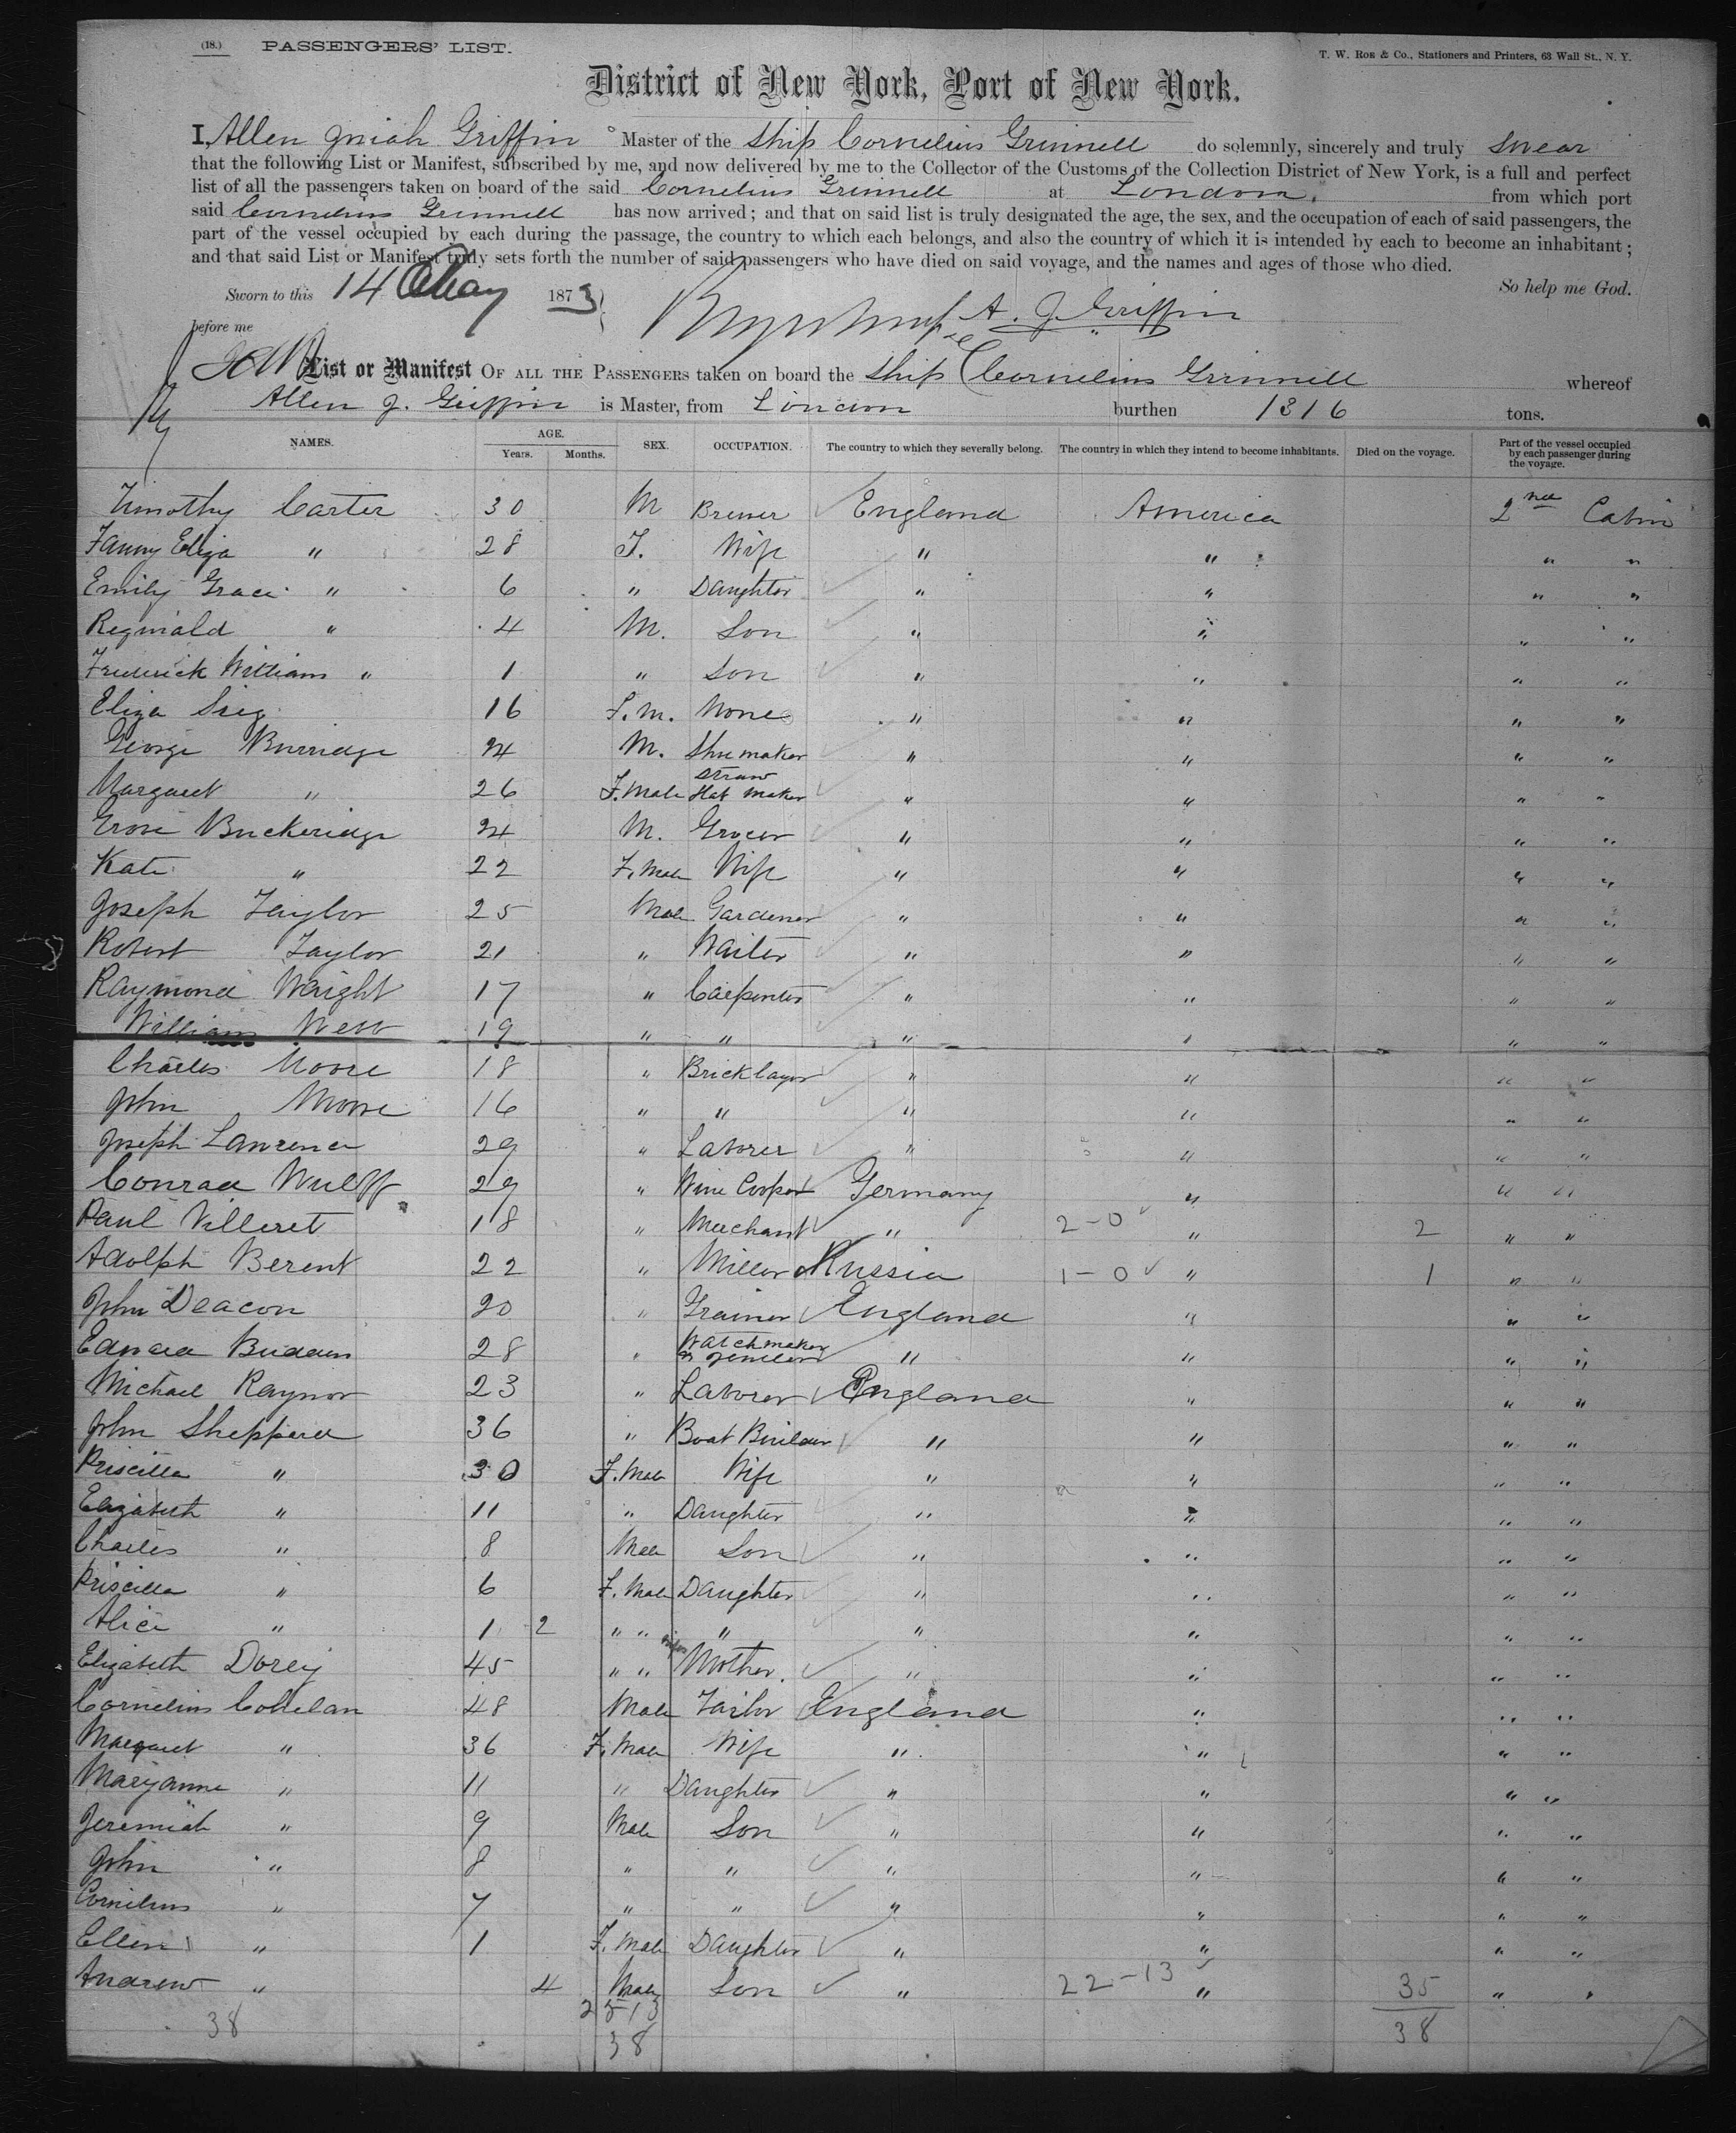 (18.) PASSENGERS' LIST. T. W. Ros & Co., Stationers and Printers, 63 Wall St., N. Y.
District of New York, Port of New York.
I, Allen Griffin Master of the Ship Cornelius Grinnell do solemnly, sincerely and truly swear
that the following List or Manifest, subscribed by me, and now delivered by me to the Collector of the Customs of the Collection District of New York, is a full and perfect
list of all the passengers taken on board of the said Cornelius Grinnell at London, from which port
said Cornelius Grinnell has now arrived; and that on said list is truly designated the age, the sex, and the occupation of each of said passengers, the
part of the vessel occupied by each during the passage, the country to which each belongs, and also the country of which it is intended by each to become an inhabitant;
and that said List or Manifest truly sets forth the number of said passengers who have died on said voyage, and the names and ages of those who died.
So help me God.
Sworn to this 14 May 1873
before me A. J. Griffin
List or Manifest OF ALL THE PASSENGERS taken on board the Ship Cornelius Grinnell whereof
Allen J. Griffin is Master, from London burthen 1316 tons.
NAMES. AGE. Years. Months. SEX. OCCUPATION. The country to which they severally belong. The country in which they intend to become inhabitants. Died on the voyage. Part of the vessel occupied by each passenger during the voyage.
Timothy Carter 30 M Brewer England America 2nd Cabin
Fanny Eliza " 28 F. Wife " " " "
Emily Grace " 6 " Daughter " " " "
Reginald " 4 M. Son " " " "
Frederick William " 1 " Son " " " "
Eliza 16 F.m. None " " " "
George Burridge 24 M. Shoemaker " " " "
Margaret " 26 F.male Straw Hat maker " " " "
Buckeridge 24 M. Grocer " " " "
Kate " 22 F.male Wife " " " "
Joseph Taylor 25 Male Gardener " " " "
Robert Taylor 21 " Waiter " " " "
Raymond Wright 17 " Carpenter " " " "
William Webb 19 " " " " " "
Charles Moore 18 " Bricklayer " " " "
John Moore 16 " " " " " "
Joseph Lawrence 29 " Laborer " " " "
Conrad Wulff 29 " Wine Cooper Germany " " "
Paul Villeret 18 " Merchant " 2-0 " 2 " "
Adolph Berent 22 " Miller Russia 1-0 " 1 " "
John Deacon 20 " Grainer England " " "
Edward Budden 28 " Watchmaker or Jeweller " " " "
Michael Raynor 23 " Laborer England " " "
John Shepperd 36 " Boat Builder " " " "
Priscilla " 30 F.Male Wife " " " "
Elizabeth " 11 " Daughter " " " "
Charles " 8 Male Son " " " "
Priscilla " 6 F.Male Daughter " " " "
Alice " 1 2 " " " " " " "
Elizabeth Dorey 45 " " Mother. " " " "
Cornelius Cohelan 48 Male Tailor England " " "
Margaret " 36 F.Male Wife " " " "
Maryanne " 11 " Daughter " " " "
Jeremiah " 9 Male Son " " " "
John " 8 " " " " " "
Cornelius " 7 " " " " " "
Ellen " 1 F.Male Daughter " " " "
Andrew " 4 Male Son " 22-13 " 35 " "
38 25 13 38
38